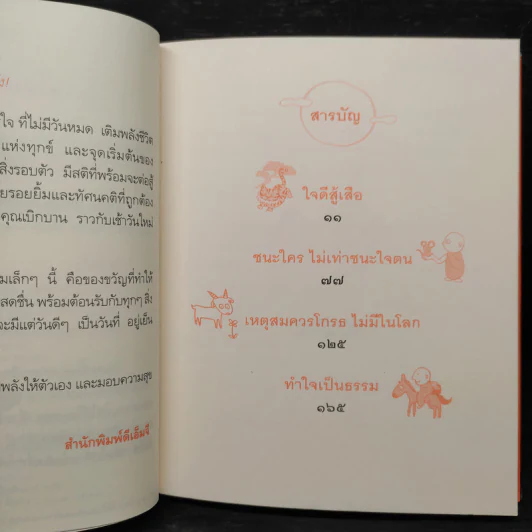 ใจ ที่ไม่มีวันหมด เติมพลังชีวิต
แห่งทุกข์ และจุดเริ่มต้นของ
สิ่งรอบตัว มีสติที่พร้อมจะต่อสู้
รอยยิ้มและทัศนคติที่ถูกต้อง
คุณเบิกบาน ราวกับเช้าวันใหม่
เล็กๆ นี้ คือของขวัญที่ทำให้
สดชื่น พร้อมต้อนรับกับทุกๆ สิ่ง
จะมีแต่วันดีๆ เป็นวันที่ อยู่เย็น
พลังให้ตัวเอง และมอบความสุข
สำนักพิมพ์ดีเอ็มจี
สารบัญ
ใจดีสู้เสือ
๑๑
ชนะใคร ไม่เท่าชนะใจตน
๗๗
เหตุสมควรโกรธ ไม่มีในโลก
๑๒๕
ทำใจเป็นธรรม
๑๖๕